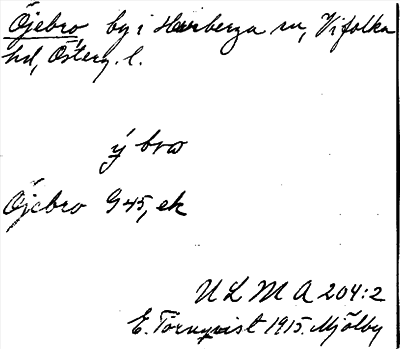 Öjebro, by i Herrberga sn, Vifolka
hd, Österg. l.
ÿ brω
Öjebro G 45, ek
U L M A 204:2
E. Törnqvist 1915. Mjölby